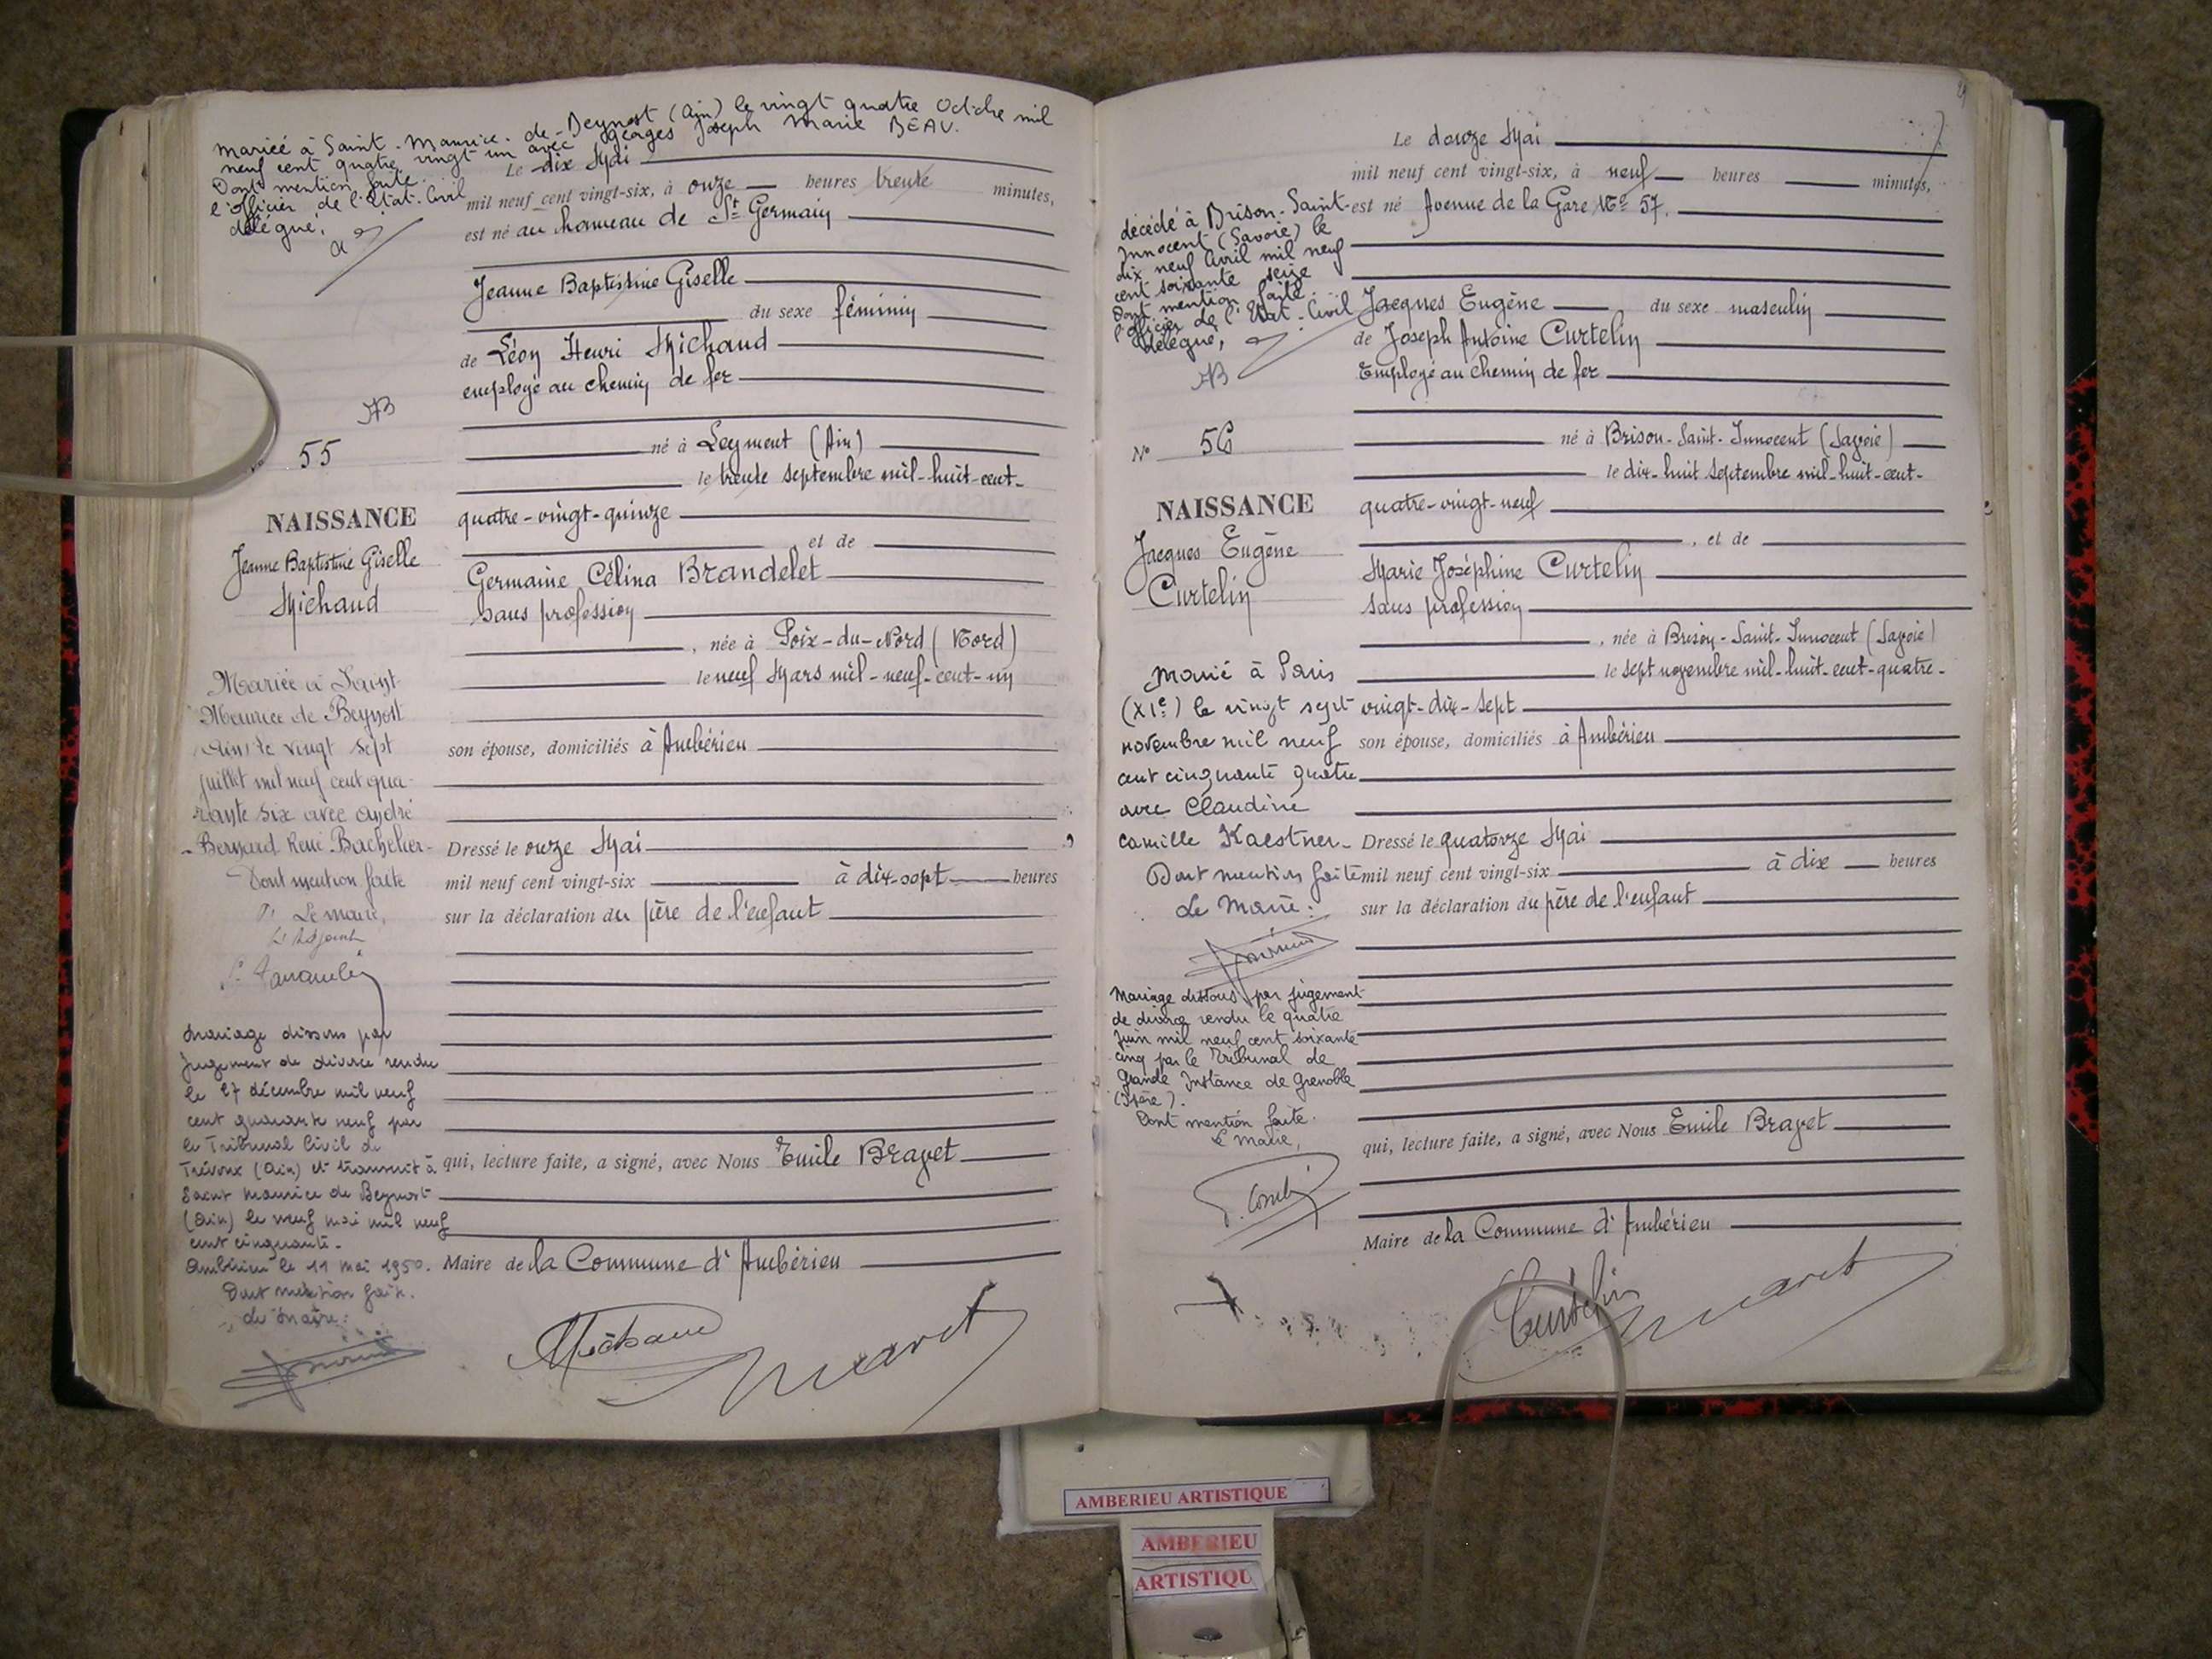 mariée à Saint-Maurice-de-Beynost (Ain) le vingt quatre Octobre mil
neuf cent quatre vingt un avec Georges Joseph Marie BEAU.
Dont mention faite.
l'Officier de l'Etat-Civil
délégué,
Le dix Mai
mil neuf cent vingt-six, à onze heures trente minutes,
est né au hameau de St Germain
Jeanne Baptistine Giselle
du sexe féminin
de Léon Henri Michaud
employé au chemin de fer
né à Leyment (Ain)
le trente septembre mil-huit-cent-
quatre-vingt-quinze
et de
Germaine Célina Brandelet
sans profession
, née à Poix-du-Nord (Nord)
le neuf Mars mil-neuf-cent-un
son épouse, domiciliés à Ambérieu
Dressé le onze Mai
mil neuf cent vingt-six à dix-sept heures
sur la déclaration du père de l'enfant
qui, lecture faite, a signé, avec Nous Emile Bravet
Maire de la Commune d'Ambérieu
Michaud
55
NAISSANCE
Jeanne Baptistine Giselle
Michaud
Mariée à Saint-
Maurice de Beynost
(Ain) le vingt sept
juillet mil neuf cent qua-
rante six avec André
Bernard René Bachelier-
Dont mention faite
Le Maire,
L'Adjoint
Mariage dissous par
jugement de divorce rendu
le 27 décembre mil neuf
cent quarante neuf par
le Tribunal Civil de
Trévoux (Ain) et transcrit à
Saint Maurice de Beynost
(Ain) le neuf mai mil neuf
cent cinquante.
Ambérieu le 11 Mai 1950.
Dont mention faite.
Le Maire:
Le douze Mai
mil neuf cent vingt-six, à neuf heures minutes,
est né Avenue de la Gare No 57.
Jacques Eugène du sexe masculin
de Joseph Antoine Curtelin
Employé au chemin de fer
né à Brison-Saint-Innocent (Savoie)
le dix-huit septembre mil-huit-cent-
quatre-vingt-neuf
, et de
Marie Joséphine Curtelin
sans profession
, née à Brison-Saint-Innocent (Savoie)
le sept novembre mil-huit-cent-quatre-
vingt-dix-sept
son épouse, domiciliés à Ambérieu
Dressé le quatorze Mai
mil neuf cent vingt-six à dix heures
sur la déclaration du père de l'enfant
qui, lecture faite, a signé, avec Nous Emile Bravet
Maire de la Commune d'Ambérieu
Curtelin
décédé à Brison-Saint-
Innocent (Savoie) le
dix neuf Avril mil neuf
cent soixante seize
Dont mention faite.
l'Officier de l'Etat-Civil
délégué,
No 56
NAISSANCE
Jacques Eugène
Curtelin
Marié à Paris
(XIe) le vingt sept
novembre mil neuf
cent cinquante quatre
avec Claudine
Camille Kaestner-
Dont mention faite
Le Maire:
Mariage dissous par jugement
de divorce rendu le quatre
juin mil neuf cent soixante
cinq par le Tribunal de
Grande Instance de Grenoble
(Isère).
Dont mention faite.
Le Maire,
AMBERIEU ARTISTIQUE
AMBERIEU
ARTISTIQU